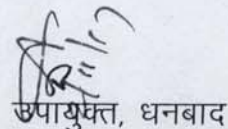 उपायुक्त, धनबाद